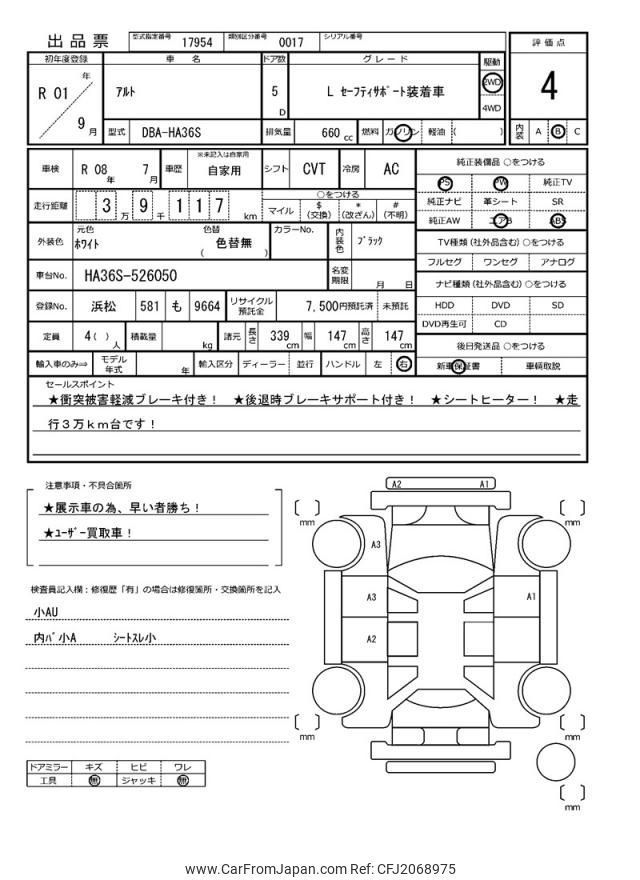 出品票 型式指定番号 17954 類別区分番号 0017 シリアル番号
評価点
4
内装 A B C
初年度登録 車名 ドア数 グレード 駆動
R 01 年 9 月
アルト 5 D L セーフティサポート装着車 2WD 4WD
型式 DBA-HA36S 排気量 660 cc 燃料 ガソリン 軽油 ( )
車検 R 08 年 7 月 車歴 ※未記入は自家用 自家用 シフト CVT 冷房 AC
走行距離 3 万 9 千 1 1 7 km
○をつける
マイル $ (交換) * (改ざん) # (不明)
外装色 元色 ホワイト 色替 色替無 ( ) カラーNo. 内装色 ブラック
車台No. HA36S-526050 名変期限 月 日
登録No. 浜松 581 も 9664 リサイクル預託金 7,500円預託済 未預託
定員 4 ( ) 人 積載量 kg 諸元 長さ 339 cm 幅 147 cm 高さ 147 cm
輸入車のみ⇒ モデル年式 年 輸入区分 ディーラー 並行 ハンドル 左 右
純正装備品 ○をつける
PS PW 純正TV
純正ナビ 革シート SR
純正AW エアB ABS
TV種類 (社外品含む) ○をつける
フルセグ ワンセグ アナログ
ナビ種類 (社外品含む) ○をつける
HDD DVD SD
DVD再生可 CD
後日発送品 ○をつける
新車保証書 車輌取説
セールスポイント
★衝突被害軽減ブレーキ付き！ ★後退時ブレーキサポート付き！ ★シートヒーター！ ★走
行３万ｋｍ台です！
注意事項・不具合箇所
★展示車の為、早い者勝ち！
★ユーザー買取車！
検査員記入欄：修復歴「有」の場合は修復箇所・交換箇所を記入
小AU
内バ小A シートスレ小
ドアミラー キズ ヒビ ワレ
工具 無 ジャッキ 無
A2 A1
A3
A3 A1
A2
mm mm
mm mm
mm
www.CarFromJapan.com Ref: CFJ2068975